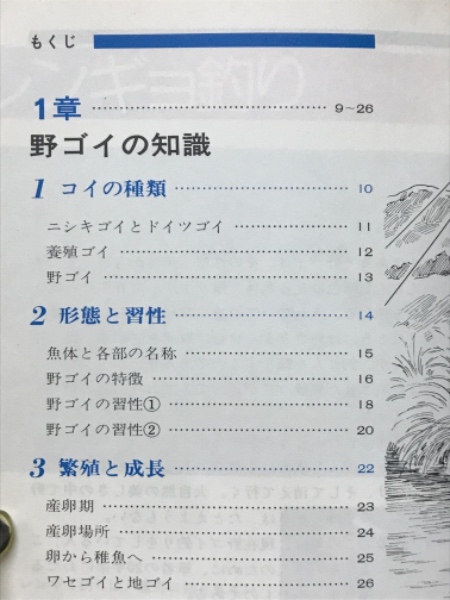 もくじ
1章 9~26
野ゴイの知識
1 コイの種類 10
ニシキゴイとドイツゴイ 11
養殖ゴイ 12
野ゴイ 13
2 形態と習性 14
魚体と各部の名称 15
野ゴイの特徴 16
野ゴイの習性① 18
野ゴイの習性② 20
3 繁殖と成長 22
産卵期 23
産卵場所 24
卵から稚魚へ 25
ワセゴイと地ゴイ 26